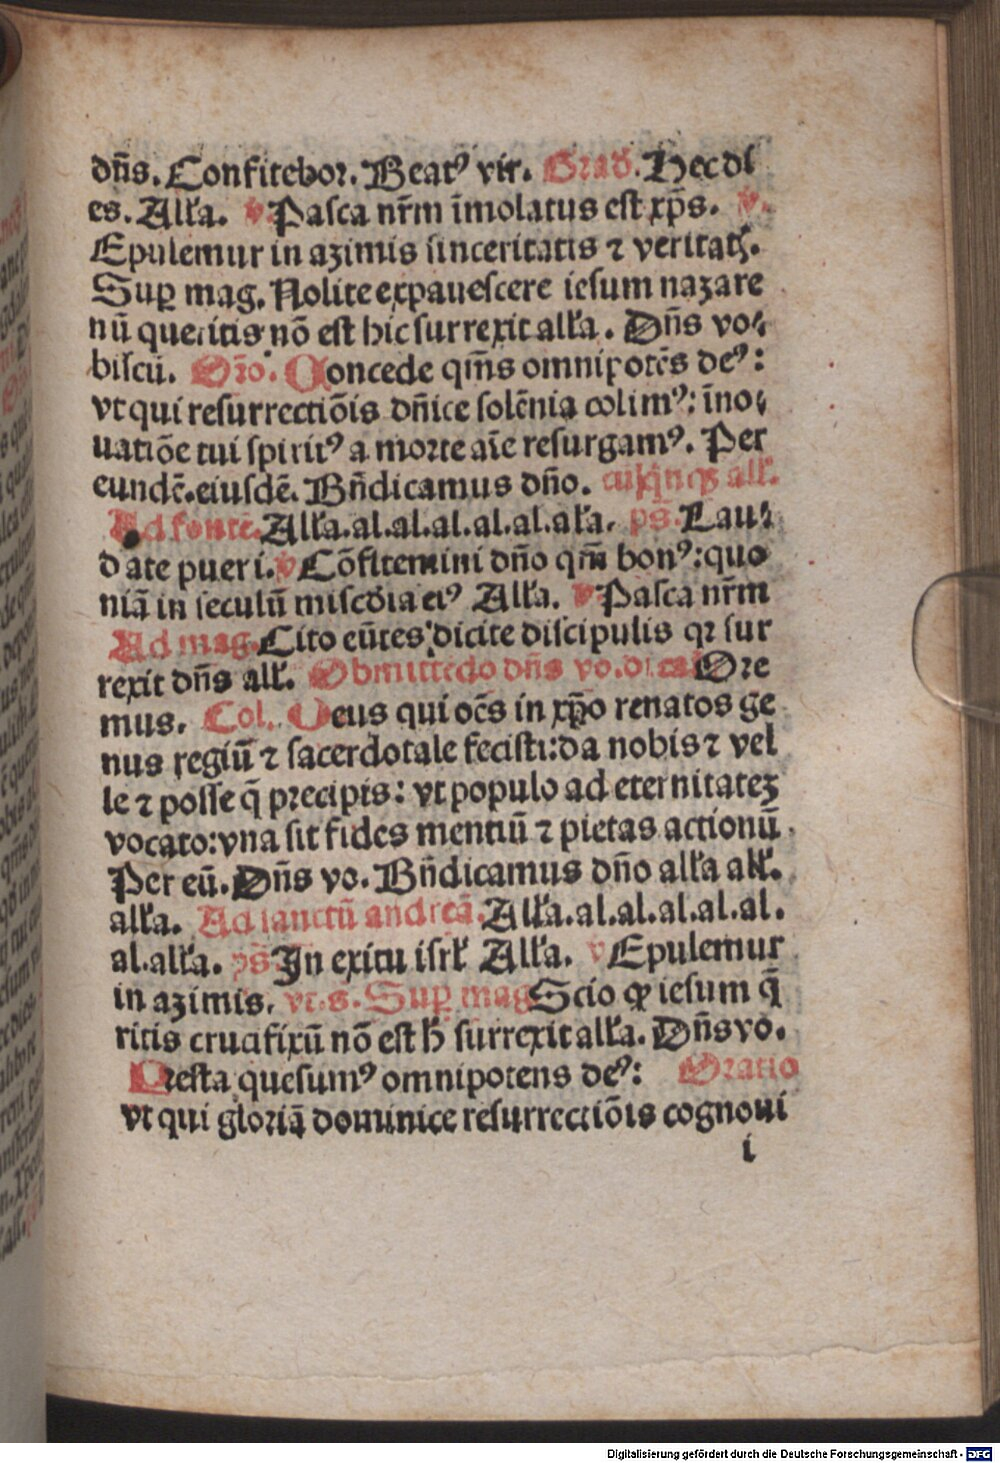 dn̄s. Confitebor. Beatꝰ vir. Grad. Hec di
es. Alľa. v Pasca nr̄m īmolatus est xp̄s. v.
Epulemur in azimis sinceritatis ⁊ veritatꝭ.
Suꝑ mag. Nolite expauescere iesum nazare
nū queritis nō est hic surrexit alľa. Dn̄s vo⸗
biscū. Or̄o. Concede qm̄s omnipotēs deꝰ:
vt qui resurrectiōis dn̄ice solēnia colimꝰ: īno⸗
uatiōe tui spiritꝰ a morte aīe resurgamꝰ. Per
eundē. eiusdē. Bn̄dicamus dn̄o. all'.
Ad fontē. Alľa. al. al. al. al. al. al. alľa. ps̄. Lau⸗
date pueri. v Cōfitemini dn̄o qm̄ bonꝰ: quo
niā in seculū mīscdia eiꝰ Alľa. v Pasca nr̄m
Ad mag. Cito eūtes dicite discipulis qꝛ sur
rexit dn̄s alľ. Obmittēdo dn̄s vo. Ore
mus. Col. Deus qui oēs in xp̄o renatos ge
nus regiū ⁊ sacerdotale fecisti: da nobis ⁊ vel
le ⁊ posse q̄ precipis: vt populo ad eternitateꝫ
vocato: vna sit fides mentiū ⁊ pietas actionū.
Per eū. Dn̄s vo. Bn̄dicamus dn̄o alľa alľ.
alľa. Ad sanctū andreā. Alľa. al. al. al. al. al.
al. alľa. ps̄ In exitu isrľ Alľa. v Epulemur
in azimis. vt. s. Suꝑ mag Scio ꝙ iesum q̄
ritis crucifixū nō est h̄ surrexit alľa. Dn̄s vo.
Presta quesumꝰ omnipotens deꝰ: Oratio
vt qui gloriā dominice resurrectiōis cognoui
i
Digitalisierung gefördert durch die Deutsche Forschungsgemeinschaft - DFG